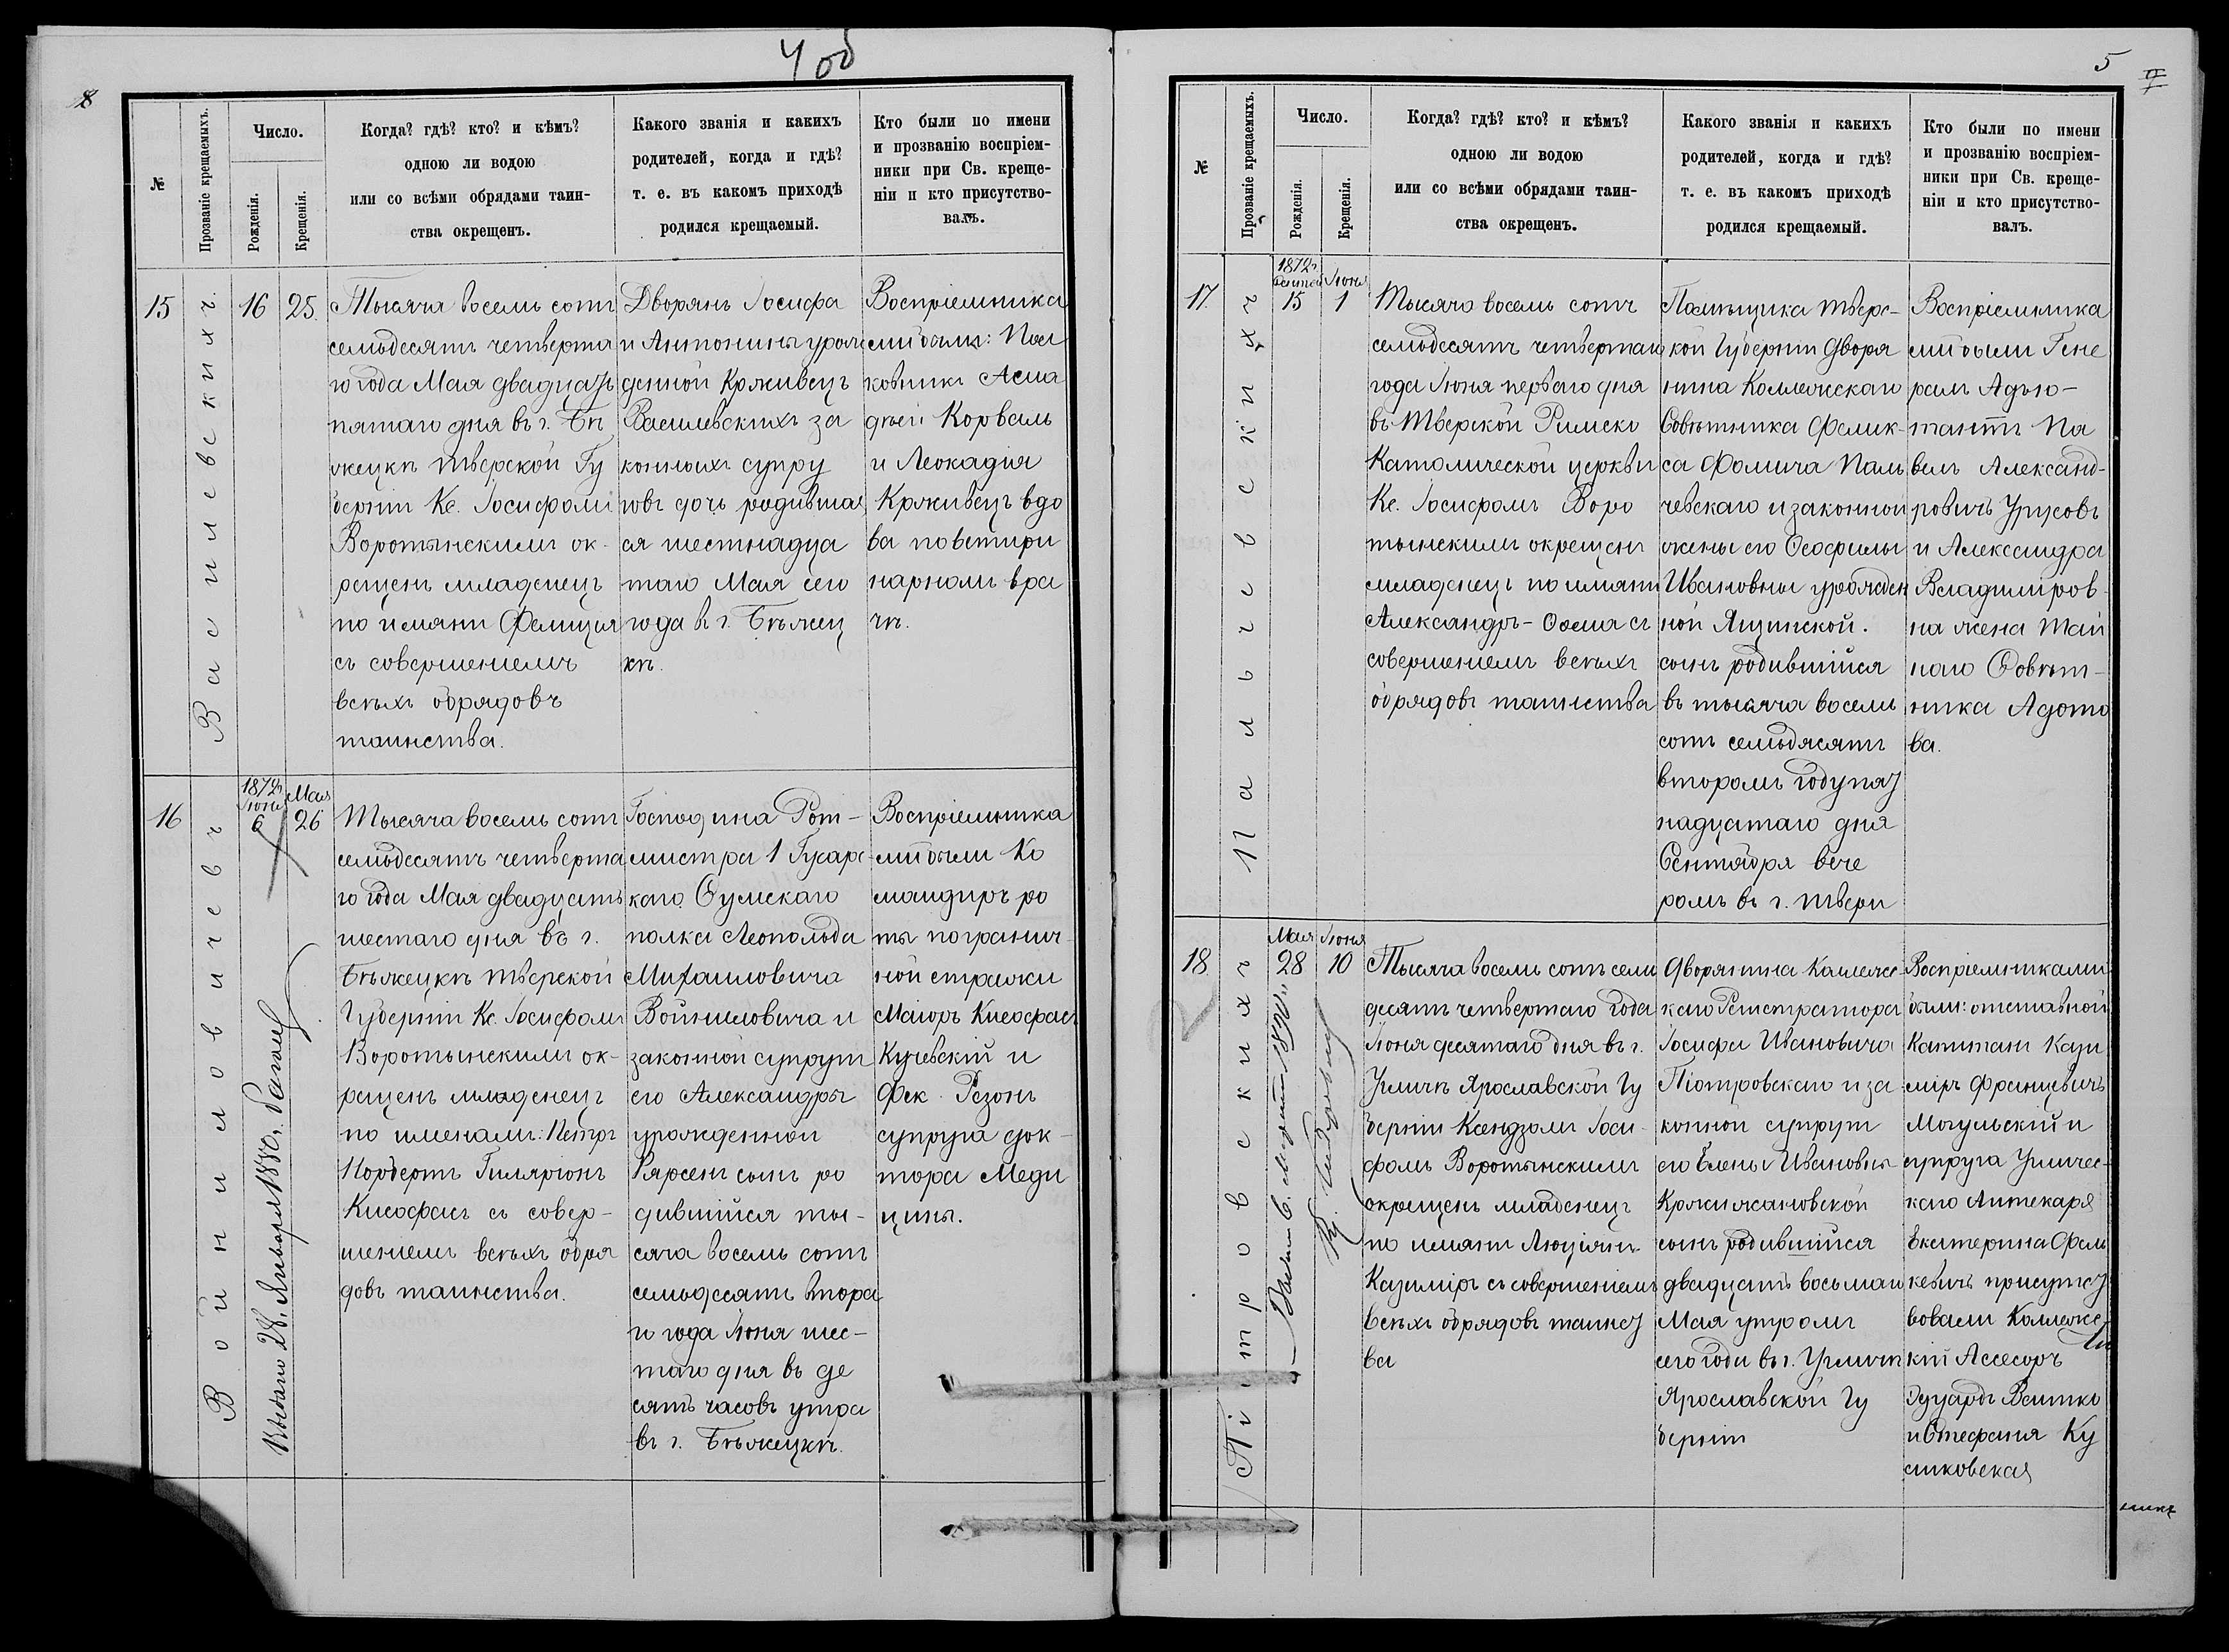 4 об
8
№
Прозваніе крещаемыхъ.
Число.
Рожденія.
Крещенія.
Когда? гдѣ? кто? и кѣмъ?
одною ли водою
или со всѣми обрядами таин-
ства окрещенъ.
Какого званія и какихъ
родителей, когда и гдѣ?
т. е. въ какомъ приходѣ
родился крещаемый.
Кто были по имени
и прозванію воспріем-
ники при Св. креще-
ніи и кто присутство-
валъ.
15
Василевскихъ
16
25.
Тысяча восемь сотъ
семьдесятъ четверта
го года Мая двадцать
пятаго дня въ г. Бѣ
жецкѣ Тверской Гу
берніи Кс. Іосифомъ
Воротынскимъ ок-
рещенъ младенецъ
по имяни Фелиція
съ совершеніемъ
всѣхъ обрядовъ
таинства.
Дворянъ Іосифа
и Антонины урож
денной Крживецъ
Василевскихъ за
конныхъ супру
говъ дочь родившая
ся шестнадца
таго Мая сего
года въ г. Бѣжец
кѣ.
Воспріемника
ми были: Пол
ковникъ
Корваль
и Леокадія
Крживецъ вдо
ва по ветири
нарномъ вра
чѣ.
16
Войниловичевъ
1872г.
Іюня
6
Мая
26
Выдано 28. Января 1880г.
Тысяча восемь сотъ
семьдесятъ четверта
го года Мая двадцать
шестаго дня въ г.
Бѣжецкѣ Тверской
Губерніи Кс. Іосифомъ
Воротынскимъ ок-
рещенъ младенецъ
по именамъ: Петръ
Норбертъ Гиляріонъ
Ксаофанъ съ совер-
шеніемъ всѣхъ обря
довъ таинства.
Господина Рот-
мистра 1 Гусарс-
каго Сумскаго
полка Леопольда
Михаиловича
Войниловича и
законной супруги
его Александры
урожденной
Ларсенъ сынъ ро
дившійся ты-
сяча восемь сотъ
семьдесятъ втора
го года Іюня шес-
таго дня въ де
сять часовъ утра
въ г. Бѣжецкѣ.
Воспріемника
ми были Ко
мандиръ ро
ты погранич
ной стражи
Маіоръ
Кучевскій и
Фек. Резонъ
супруга док-
тора Меди
цины.
5
№
Прозваніе крещаемыхъ.
Число.
Рожденія.
Крещенія.
Когда? гдѣ? кто? и кѣмъ?
одною ли водою
или со всѣми обрядами таин-
ства окрещенъ.
Какого званія и какихъ
родителей, когда и гдѣ?
т. е. въ какомъ приходѣ
родился крещаемый.
Кто были по имени
и прозванію воспріем-
ники при Св. креще-
ніи и кто присутство-
валъ.
17.
Пальчевскихъ
1872г.
Сентяб
15
Іюня
1
Тысяча восемь сотъ
семьдесятъ четвертаго
года Іюня перваго дня
въ Тверской Римско
Католической церкви
Кс. Іосифомъ Воро
тынскимъ окрещенъ
младенецъ по имяни
Александръ-Ѳома съ
совершеніемъ всѣхъ
обрядовъ таинства
Помѣщика Тверс-
кой Губерніи Дворя
нина Коллежскаго
Совѣтника Фелик-
са Фомича Паль
чевскаго и законной
жены его Ѳеофилы
Ивановны урожден
ной Ящинской.
сынъ родившійся
въ тысяча восемь
сотъ семьдясятъ
второмъ году пят
надцатаго дня
Сентября вече
ромъ въ г. Твери
Воспріемника
ми были Гене
ралъ Адъю-
тантъ Па
велъ Александ-
ровичъ Урусовъ
и Александра
Владиміров-
на жена Тай
наго Совѣт-
ника Адото
ва.
18.
Піотровскихъ
Мая
28
Іюня
10
Тысяча восемь сотъ семь
десятъ четвертаго года
Іюня десятаго дня въ г.
Угличѣ Ярославской Гу
берніи Ксендзомъ Іоси-
фомъ Воротынскимъ
окрещенъ младенецъ
по имяни Люціянъ
Казиміръ съ совершеніемъ
всѣхъ обрядовъ таинст
ва
Дворянина Коллежс
каго Регистратора
Іосифа Ивановича
Піотровскаго и за
конной супруги
его Елены Ивановны
Кржижановской
сынъ родившійся
двадцать восьмаго
Мая утромъ
сего года въ г. Угличѣ
Ярославской Гу
берніи
Воспріемниками
были: отставной
Капитанъ Кази
міръ Францевичъ
Могульскій и
супруга Угличес-
каго Аптекаря
Екатерина
кевичъ присутст
вовали Коллежс
кій Ассесоръ
Эдуардъ Вентко
и Стефанія Ку
чиковская